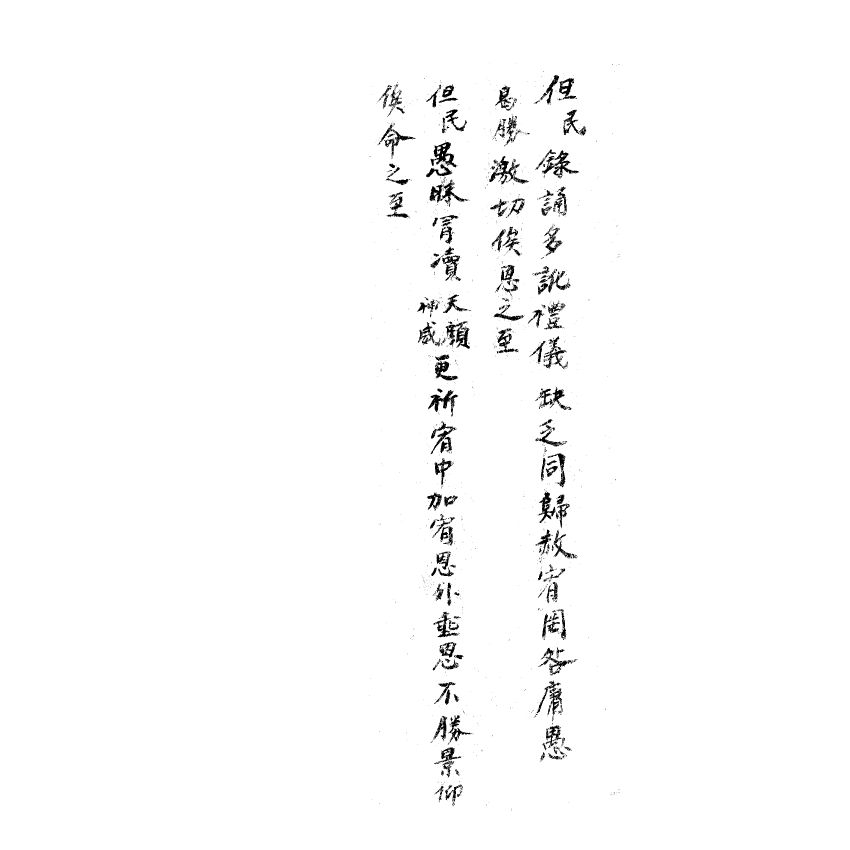 但民錄誦多訛禮儀缺乏同歸赦宥罔咎庸愚
曷勝激切俟恩之至
但民愚昧冒瀆天顏神威更祈宥中加宥恩外垂恩不勝景仰
俟命之至